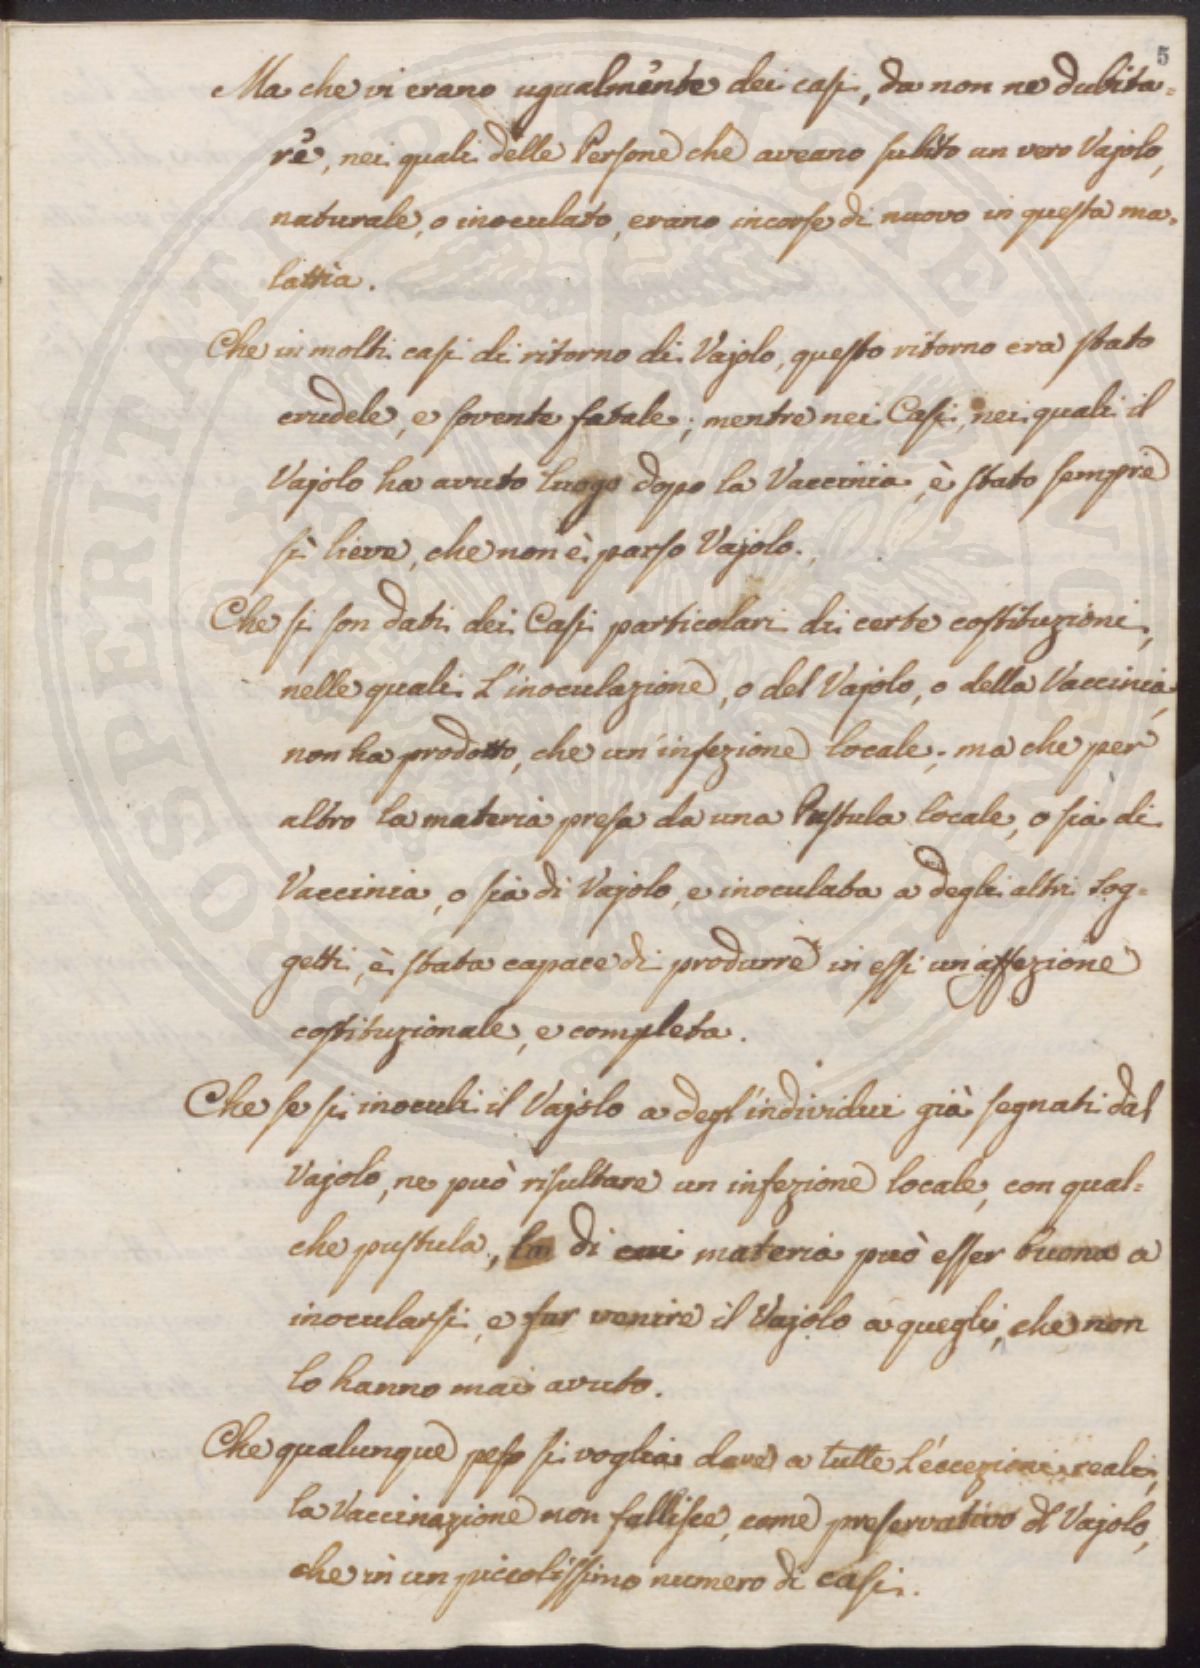 5
Ma che vi erano ugualmente dei casi, da non ne dubita=
re, nei quali delle Persone che aveano subìto un vero Vajolo,
naturale, o inoculato, erano incorse di nuovo in questa ma=
lattia.
Che in molti casi di ritorno di Vajolo, questo ritorno era stato
crudele, e sovente fatale; mentre nei Casi, nei quali il
Vajolo ha avuto luogo dopo la Vaccinia, è stato sempre
sì lieve, che non è parso Vajolo.
Che si son dati dei Casi particolari di certe costituzioni,
nelle quali l'inoculazione, o del Vajolo, o della Vaccinia,
non ha prodotto, che un'infezione locale; ma che per
altro la materia presa da una Pustula locale, o sia di
Vaccinia, o sia di Vajolo, e inoculata a degli altri Sog=
getti, è stata capace di produrre in essi un'affezione
costituzionale, e completa.
Che se si inoculi il Vajolo a degl'individui già segnati dal
Vajolo, ne può risultare un infezione locale, con qual=
che pustula, la di cui materia può esser buona a
inocularsi, e far venire il Vajolo a quegli, che non
lo hanno mai avuto.
Che qualunque peso si voglia dare a tutte l'eccezioni reali,
la Vaccinazione non fallisce, come preservativo dl Vajolo,
che in un piccolissimo numero di casi.
PROSPERITATI PUBLICAE